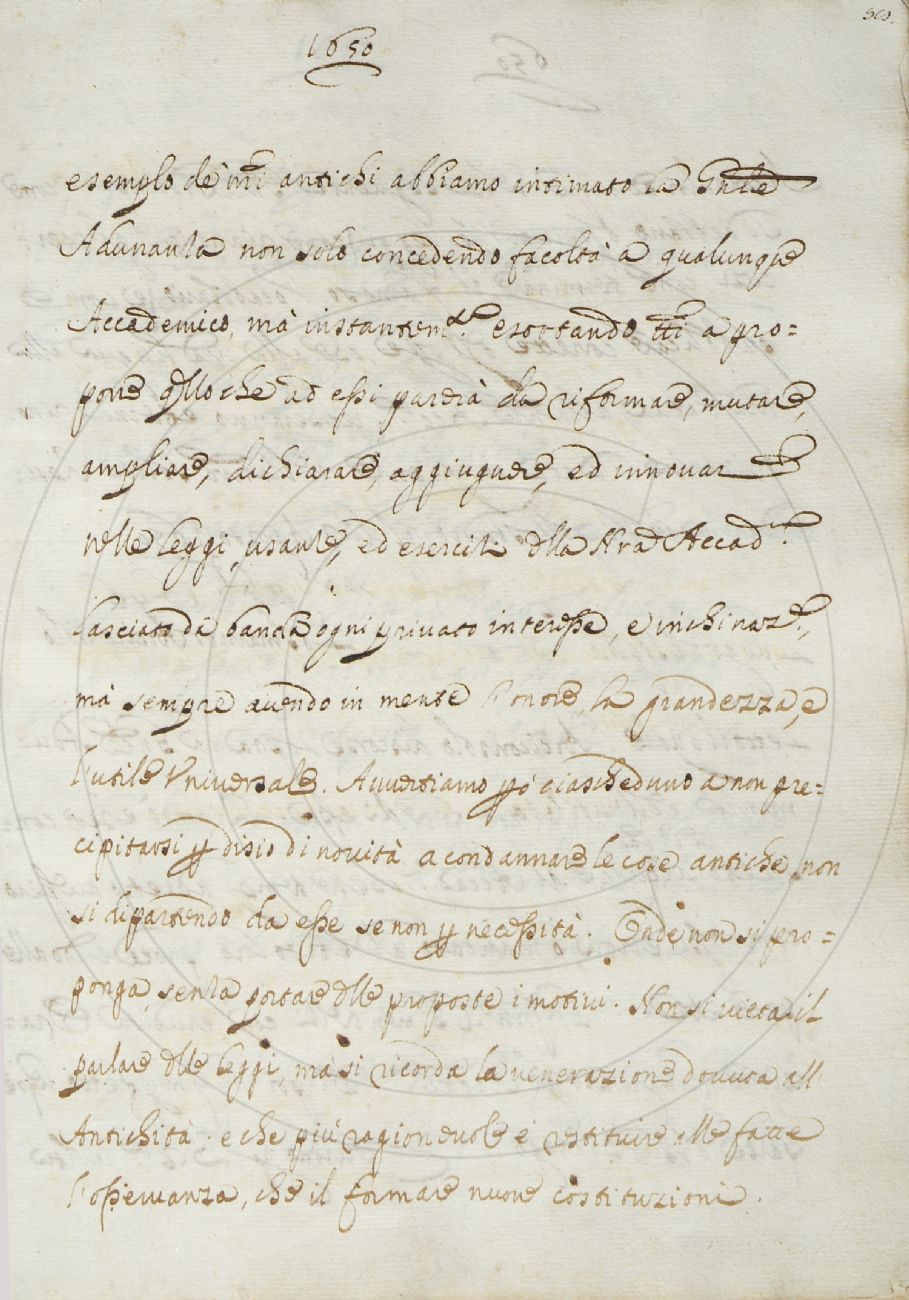 1650
esemplo de' nri antichi abbiamo intimato la Gnle
Adunanza non solo concedendo facoltà a qualunque
Accademico, mà instantem.te esortando tti a pro=
porre qllo che ad essi parerà da riformare, mutare,
ampliare, dichiarare, aggiugnere, ed innovare
nelle leggi, usanze, ed esercizi dlla Nra Accad.a
lasciato da banda ogni privato interesse, e inchinaz.e,
mà sempre avendo in mente l'onore, la grandezza, e
l'utile Vniversale. Avvertiamo pò ciascheduno a non pre=
cipitarsi p disio di novità a condannare le cose antiche, non
si dipartendo da esse se non p necessità. Onde non si pro=
ponga, senza portare dlle proposte i motivi. Non si vieta il
parlare dlle leggi, mà si ricorda la venerazione dovuta all'
Antichità, e che più ragionevole è restituire alle fatte
l'osservanza, che il formare nuove costituzioni.